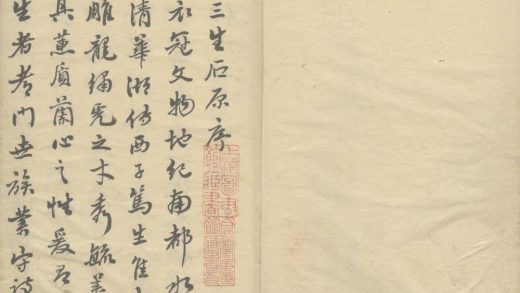 三生石原序
衣冠文物地紀南都水
清華湖傳西子篤生
雕龍繡虎之才秀毓
具蕙質蘭心之性爰
生者門世族業守詩